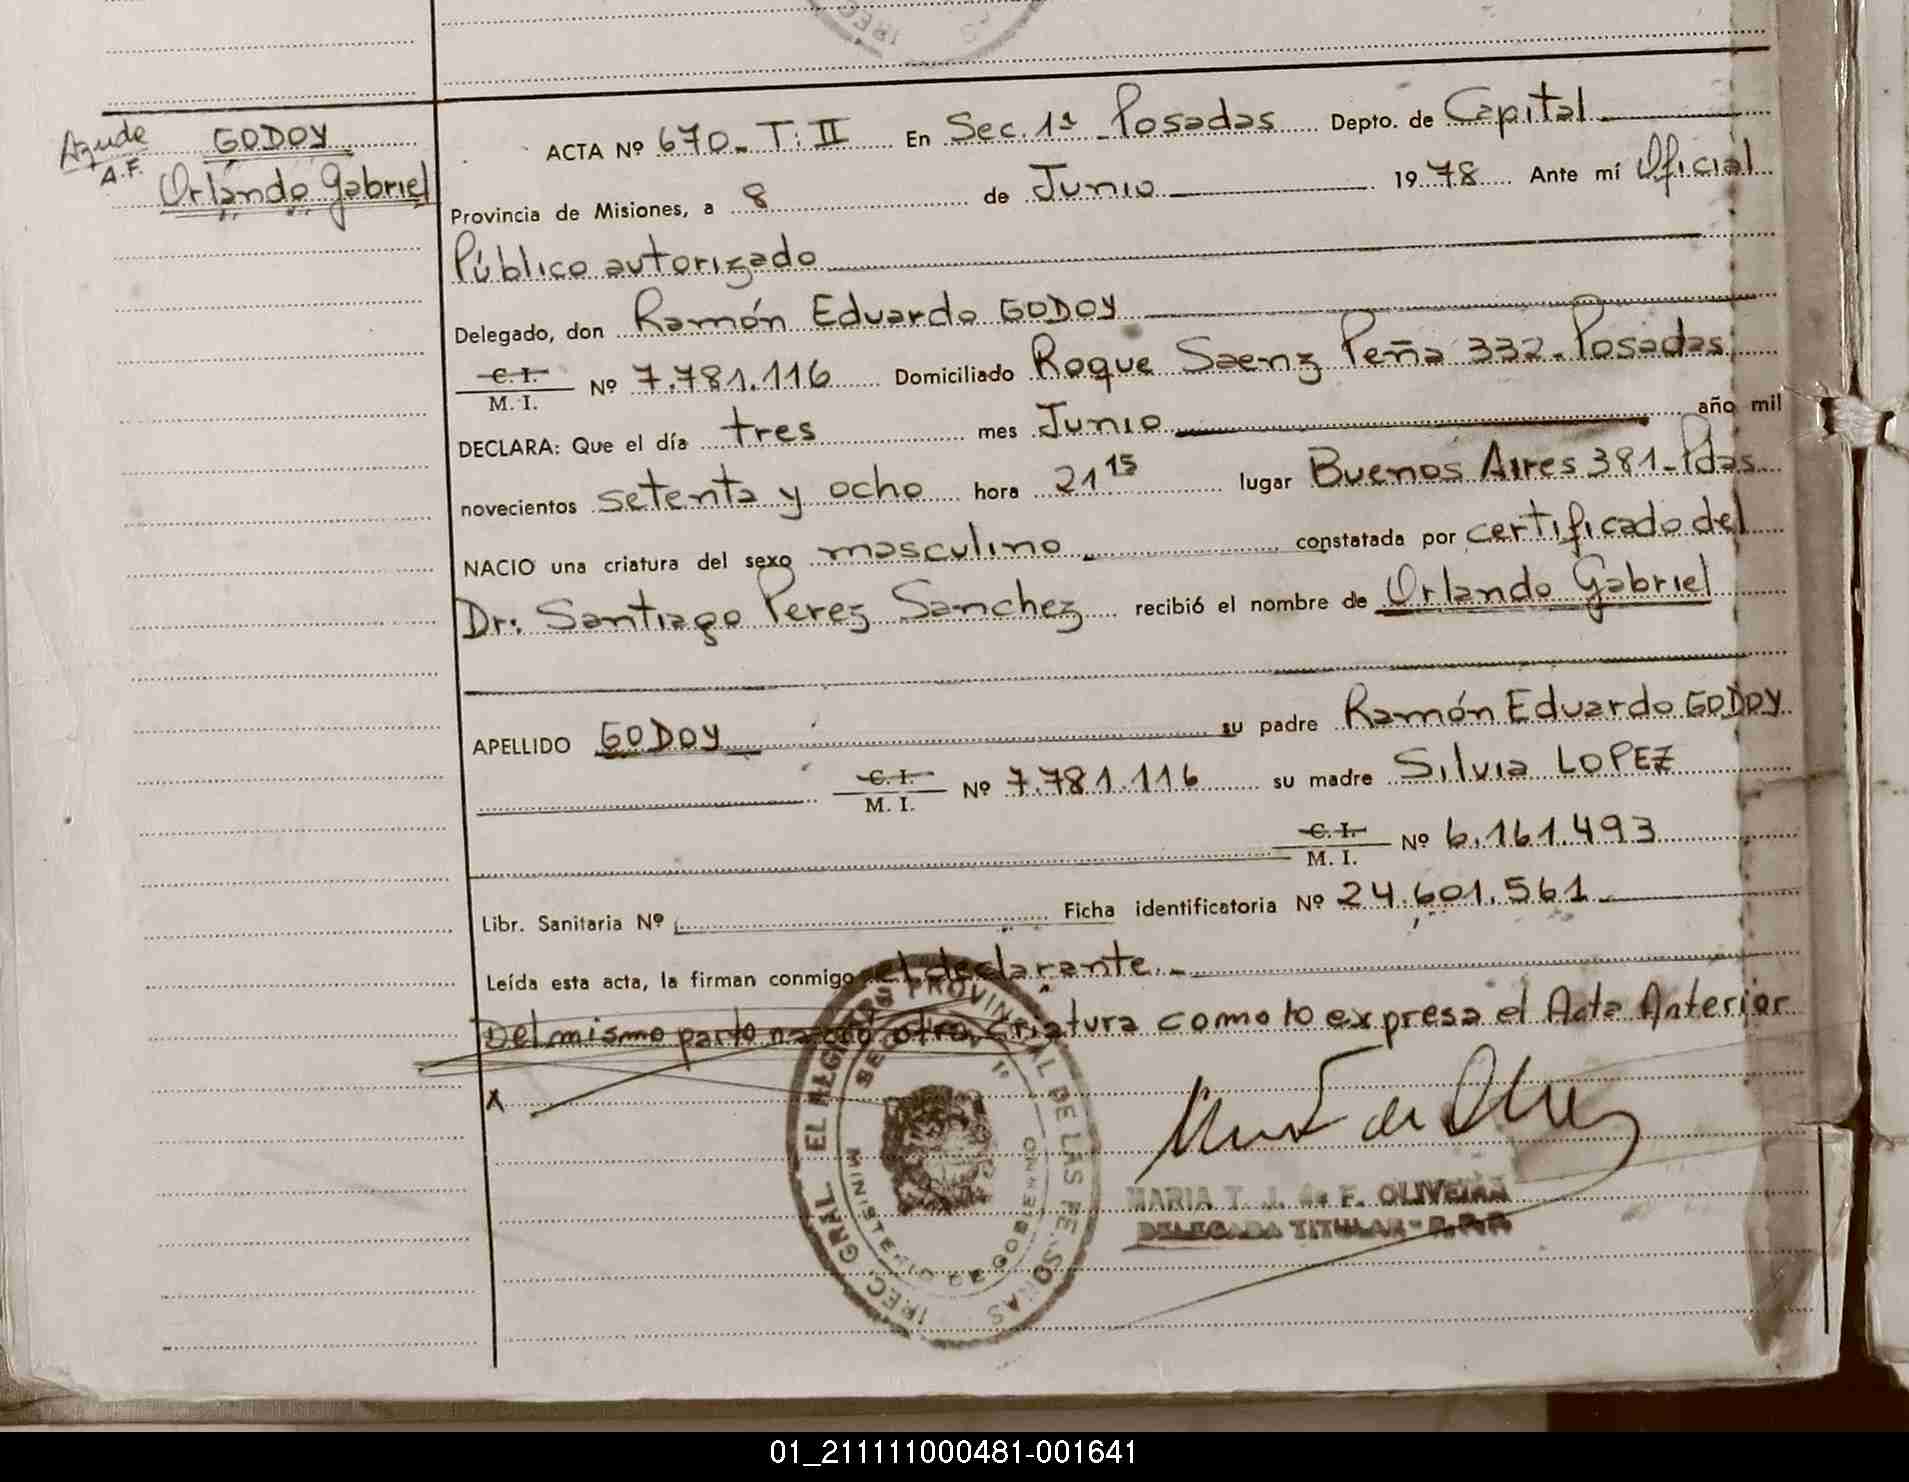 IREC
Ayude
A.F.
GODOY
Orlando Gabriel
ACTA Nº 670_ T: II En Sec. 1ª _ Posadas Depto. de Capital
Provincia de Misiones, a 8 de Junio 1978 Ante mí Oficial
Público autorizado
Delegado, don Ramón Eduardo GODOY
C. I.
M. I. Nº 7.781.116 Domiciliado Roque Saenz Peña 332_ Posadas;
DECLARA: Que el día tres mes Junio año mil
novecientos setenta y ocho hora 21 15 lugar Buenos Aires 381_ Pdas.
NACIO una criatura del sexo masculino constatada por certificado del
Dr: Santiago Perez Sanchez recibió el nombre de Orlando Gabriel
APELLIDO GODOY su padre Ramón Eduardo GODOY
C. I.
M. I. Nº 7.781.116 su madre Silvia LOPEZ
C. I.
M. I. Nº 6.161.493
Libr. Sanitaria Nº Ficha identificatoria Nº 24.601.561
Leída esta acta, la firman conmigo el declarante._
Del mismo parto nació otra criatura como lo expresa el Acta Anterior
X
IREC. GRAL. EL REGISTRO PROVINCIAL DE LAS PERSONAS
SECC 1º
MINISTERIO DE GOBIERNO
MARIA T. J. de F. OLIVEIRA
DELEGADA TITULAR - R.P.P.
01_211111000481-001641